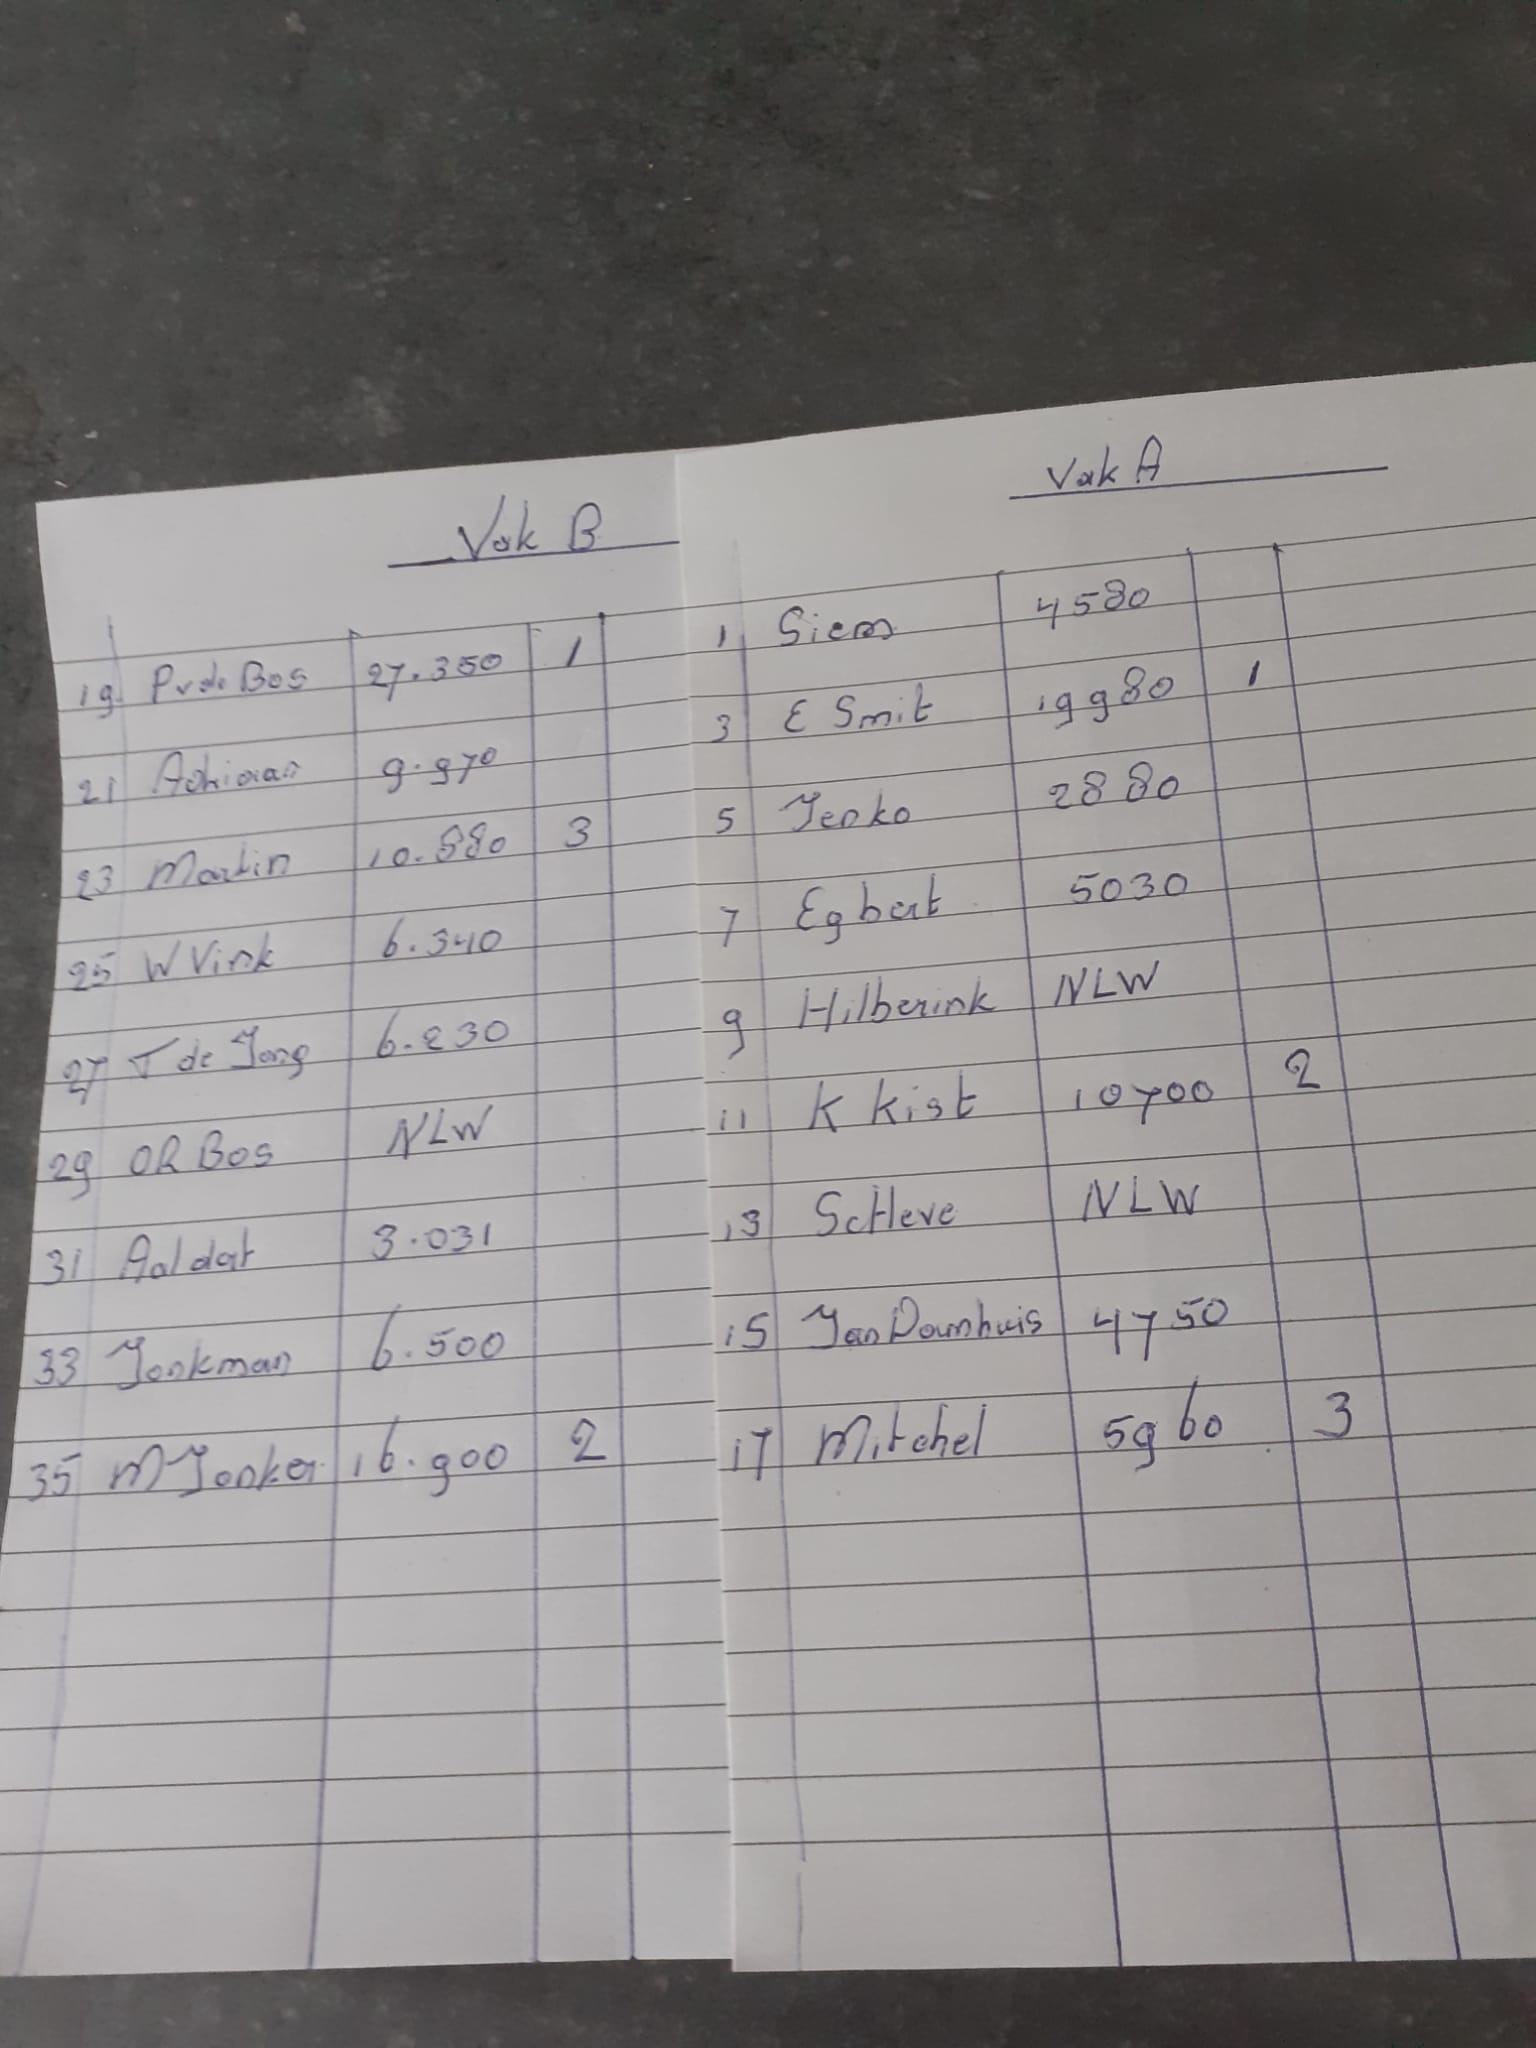 Vak B
19 P v de Bos 27.350 1
21 Adriaan 9.970
23 Martin 10.880 3
25 W Vink 6.340
27 J de Jong 6.230
29 OR Bos NLW
31 Aaldert 3.031
33 Jonkman 6.500
35 M Jonker 16.900 2
Vak A
1 Siem 4580
3 E Smit 19980 1
5 Jenko 2880
7 Egbert 5030
9 Hilberink NLW
11 K Kist 10700 2
13 NLW
15 Jan Damhuis 4750
17 Mitchel 5960 3